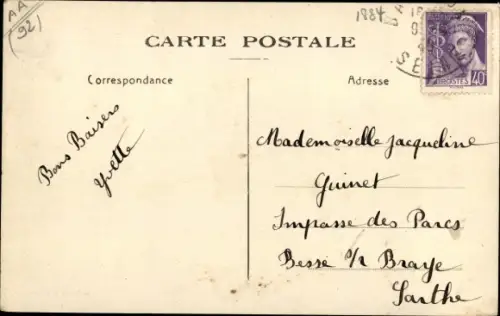 AA
(92)
1884
CARTE POSTALE
Correspondance
Adresse
POSTES 40
Bons Baisers
Yvette
Mademoiselle Jacqueline
Guinet
Impasse des Parcs
Bessé s/r Braye
Sarthe